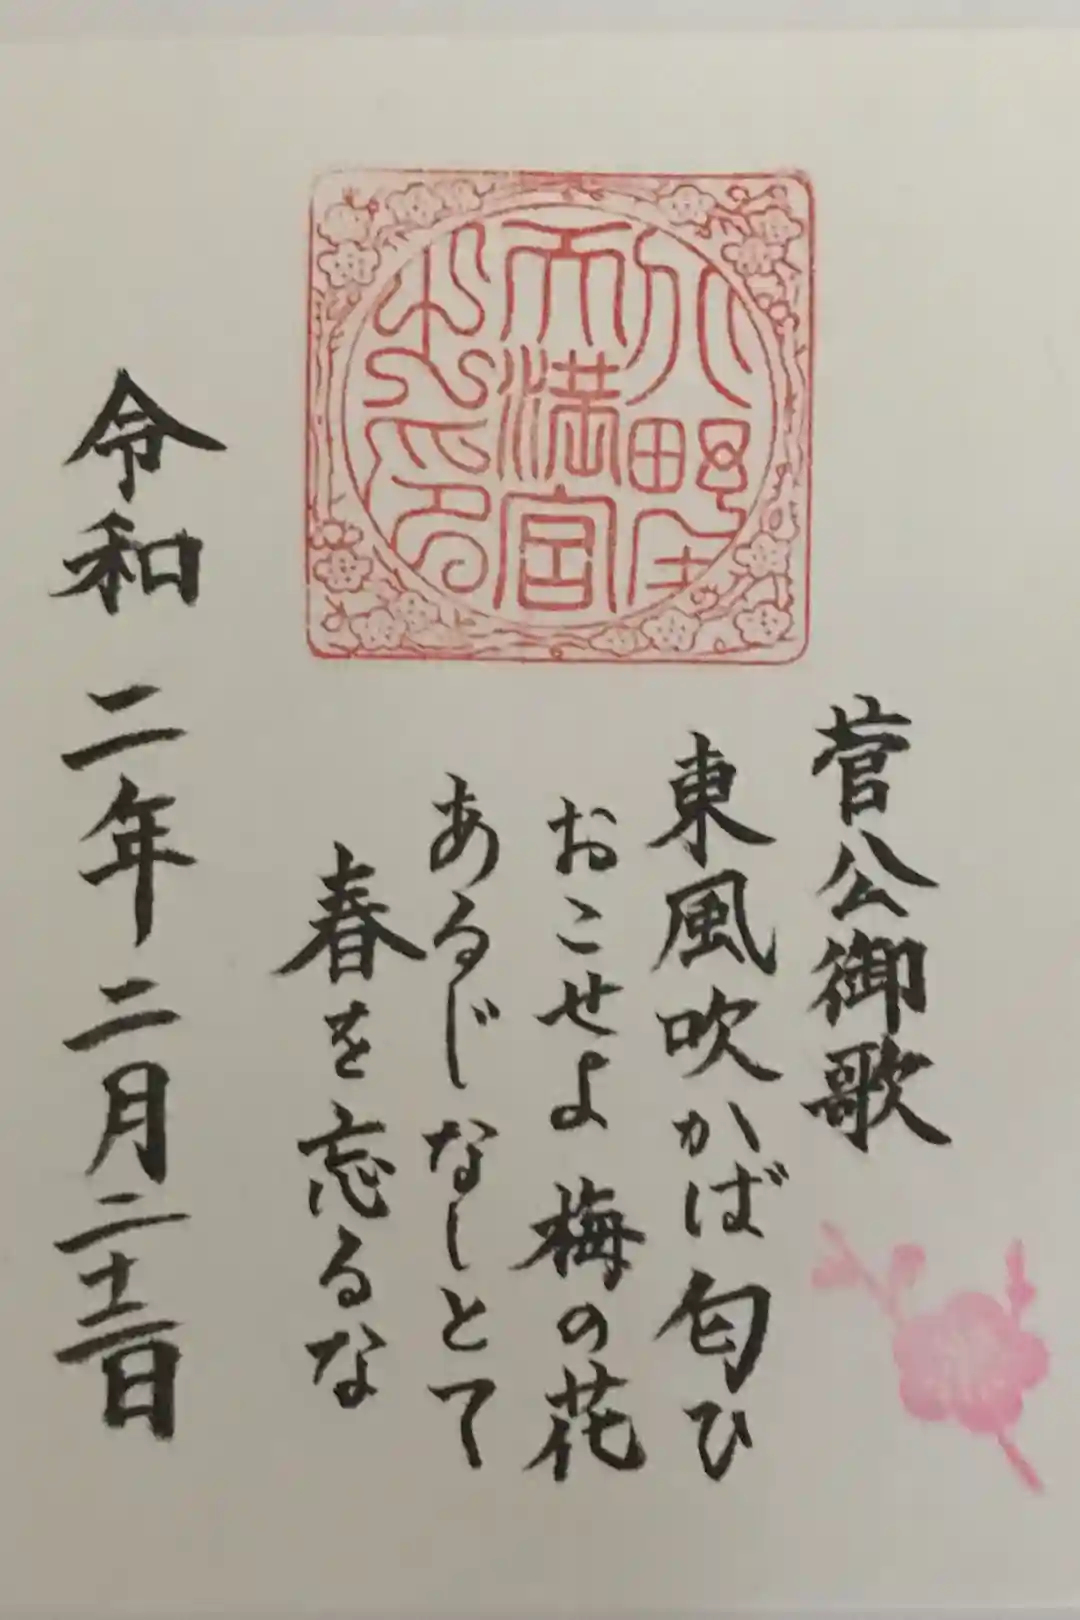 野
天満宮
之印
菅公御歌
東風吹かば匂ひ
おこせよ梅の花
あるじなしとて
春を忘るな
令和二年二月二十二日